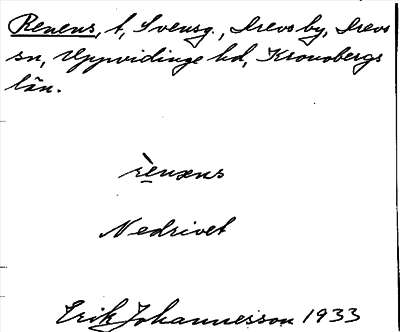 Renens, t, Svensg., Drevs by, Drevs
sn, Uppvidinge hd, Kronobergs
län.
rènæns
Nedrivet
Erik Johannesson 1933